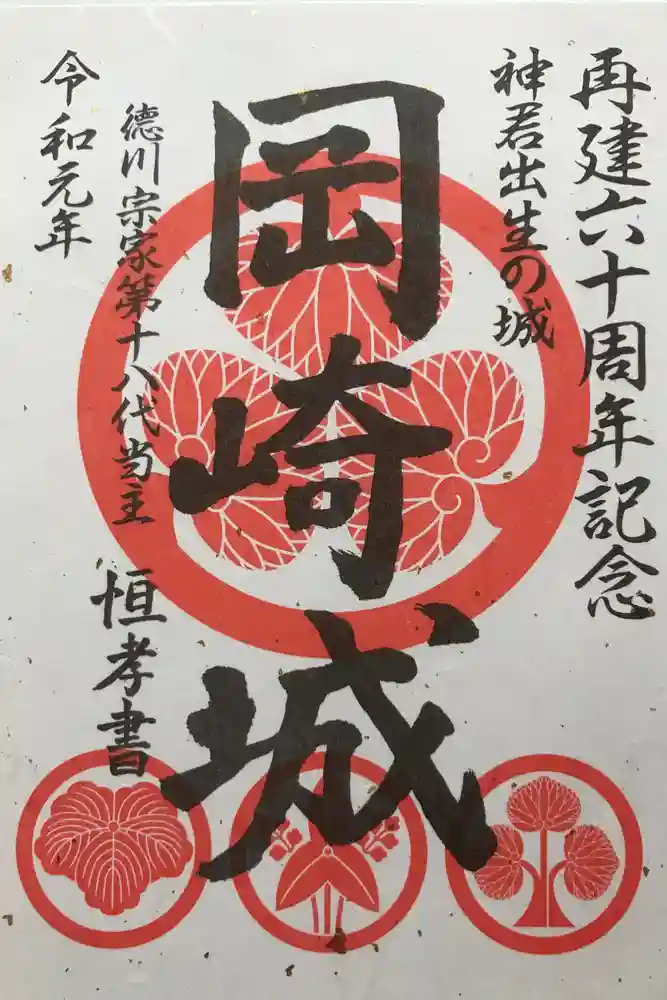 再建六十周年記念
神君出生の城
岡崎城
徳川宗家第十八代当主
恒孝書
令和元年